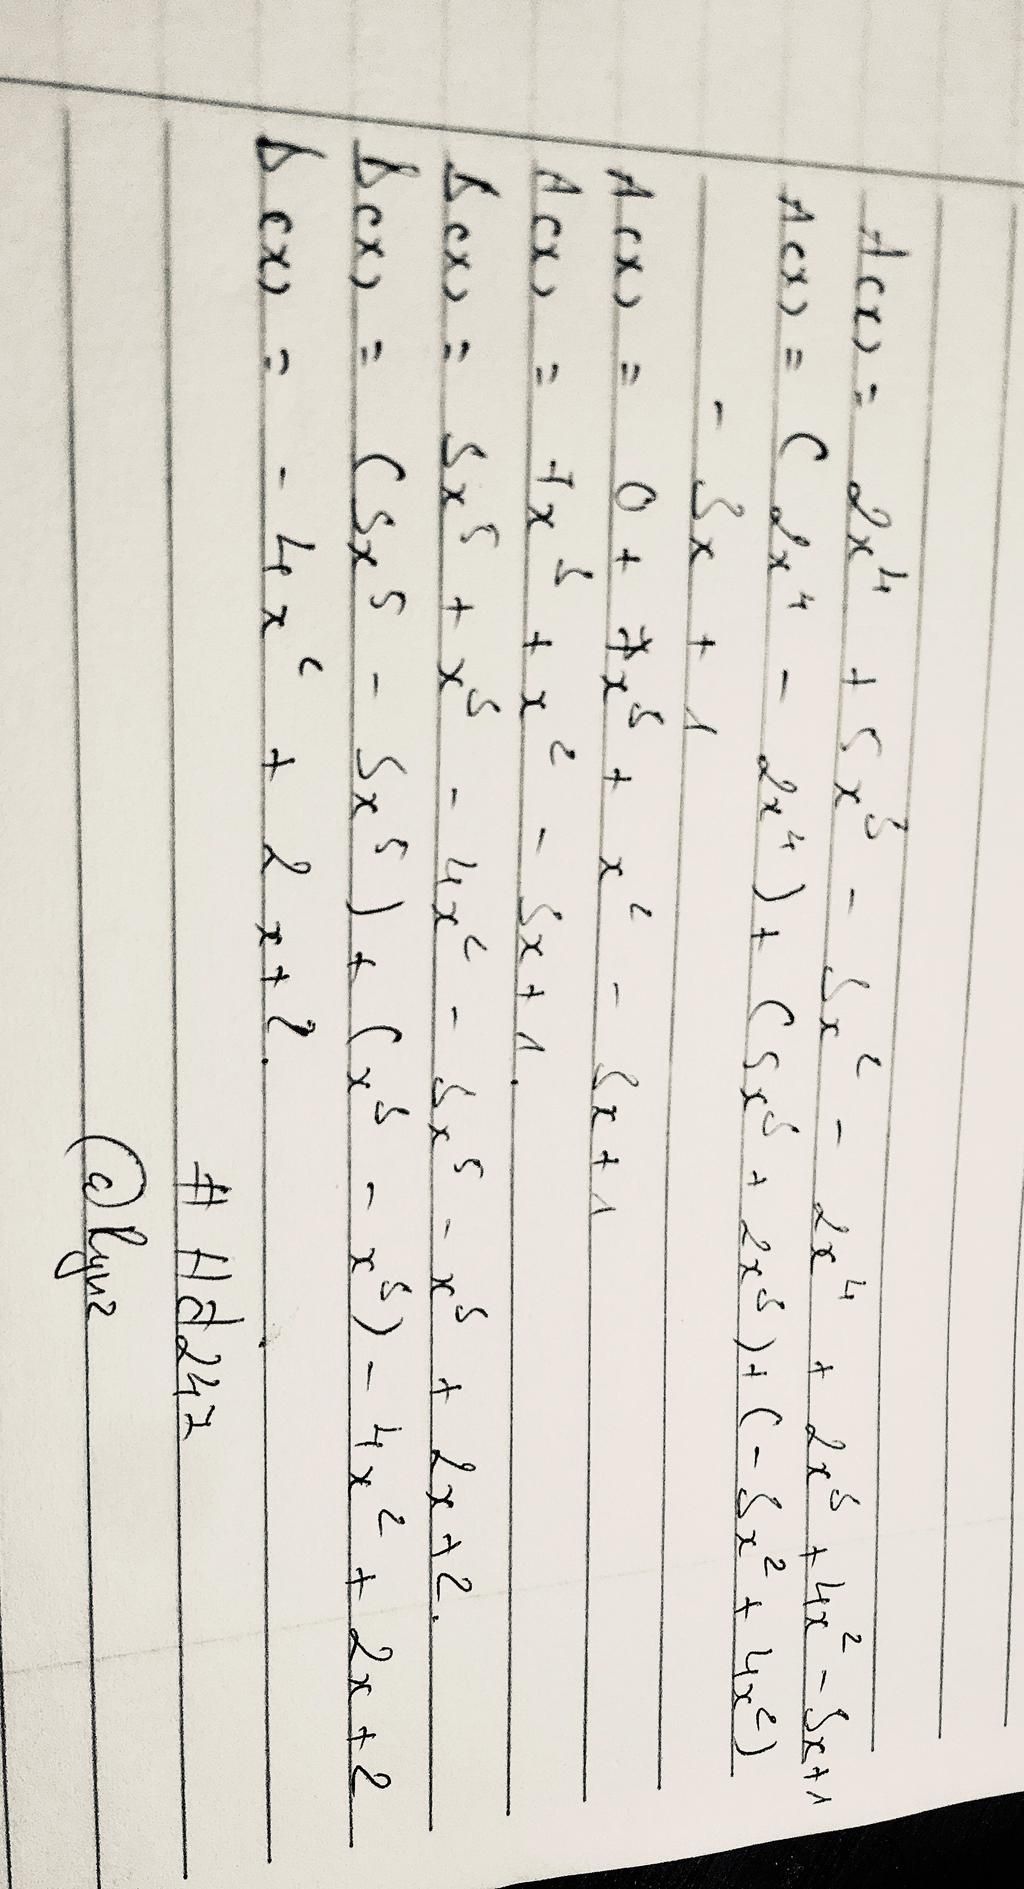 A(x) = 2x⁴ + 5x³ - 5x² - 2x⁴ + 2x⁵ + 4x² - 3x+1
A(x) = (2x⁴ - 2x⁴) + (5x⁵ + 2x⁵) + (-5x² + 4x²)
- 3x + 1
A(x) = 0 + 7x⁵ + x² - 3x+1
A(x) = 7x⁵ + x² - 3x+1.
B(x) = 5x⁵ + x⁵ - 4x² - 5x⁵ - x⁵ + 2x+2.
B(x) = (5x⁵ - 5x⁵) + (x⁵ - x⁵) - 4x² + 2x+2
B(x) = - 4x² + 2x+2.
# Hd247